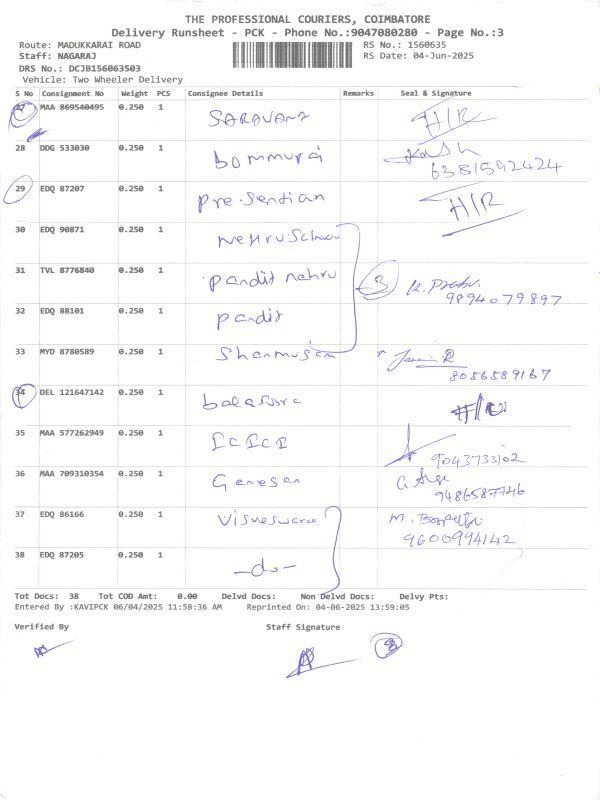 THE PROFESSIONAL COURIERS, COIMBATORE
Delivery Runsheet - PCK - Phone No.:9047080280 - Page No.:3
Route: MADUKKARAI ROAD RS No.: 1560635
Staff: NAGARAJ RS Date: 04-Jun-2025
DRS No.: DCJB156063503
Vehicle: Two Wheeler Delivery
S No Consignment No Weight PCS Consignee Details Remarks Seal & Signature
27 MAA 869540495 0.250 1 SARAVANA H/R
28 DDG 533030 0.250 1 bommurai
6381592424
29 EDQ 87207 0.250 1 H/R
30 EDQ 90871 0.250 1 Nehru
31 TVL 8776840 0.250 1 pandit nehru 3
9894079897
32 EDQ 88101 0.250 1 pandit
33 MYD 8780589 0.250 1 Shanmugam
8056589167
34 DEL 121647142 0.250 1
35 MAA 577262949 0.250 1 ICICI
9043733102
36 MAA 709310354 0.250 1 Ganesan
37 EDQ 86166 0.250 1 M.
9600994142
38 EDQ 87205 0.250 1 -do-
Tot Docs: 38 Tot COD Amt: 0.00 Delvd Docs: Non Delvd Docs: Delvy Pts:
Entered By :KAVIPCK 06/04/2025 11:58:36 AM Reprinted On: 04-06-2025 13:59:05
Verified By Staff Signature